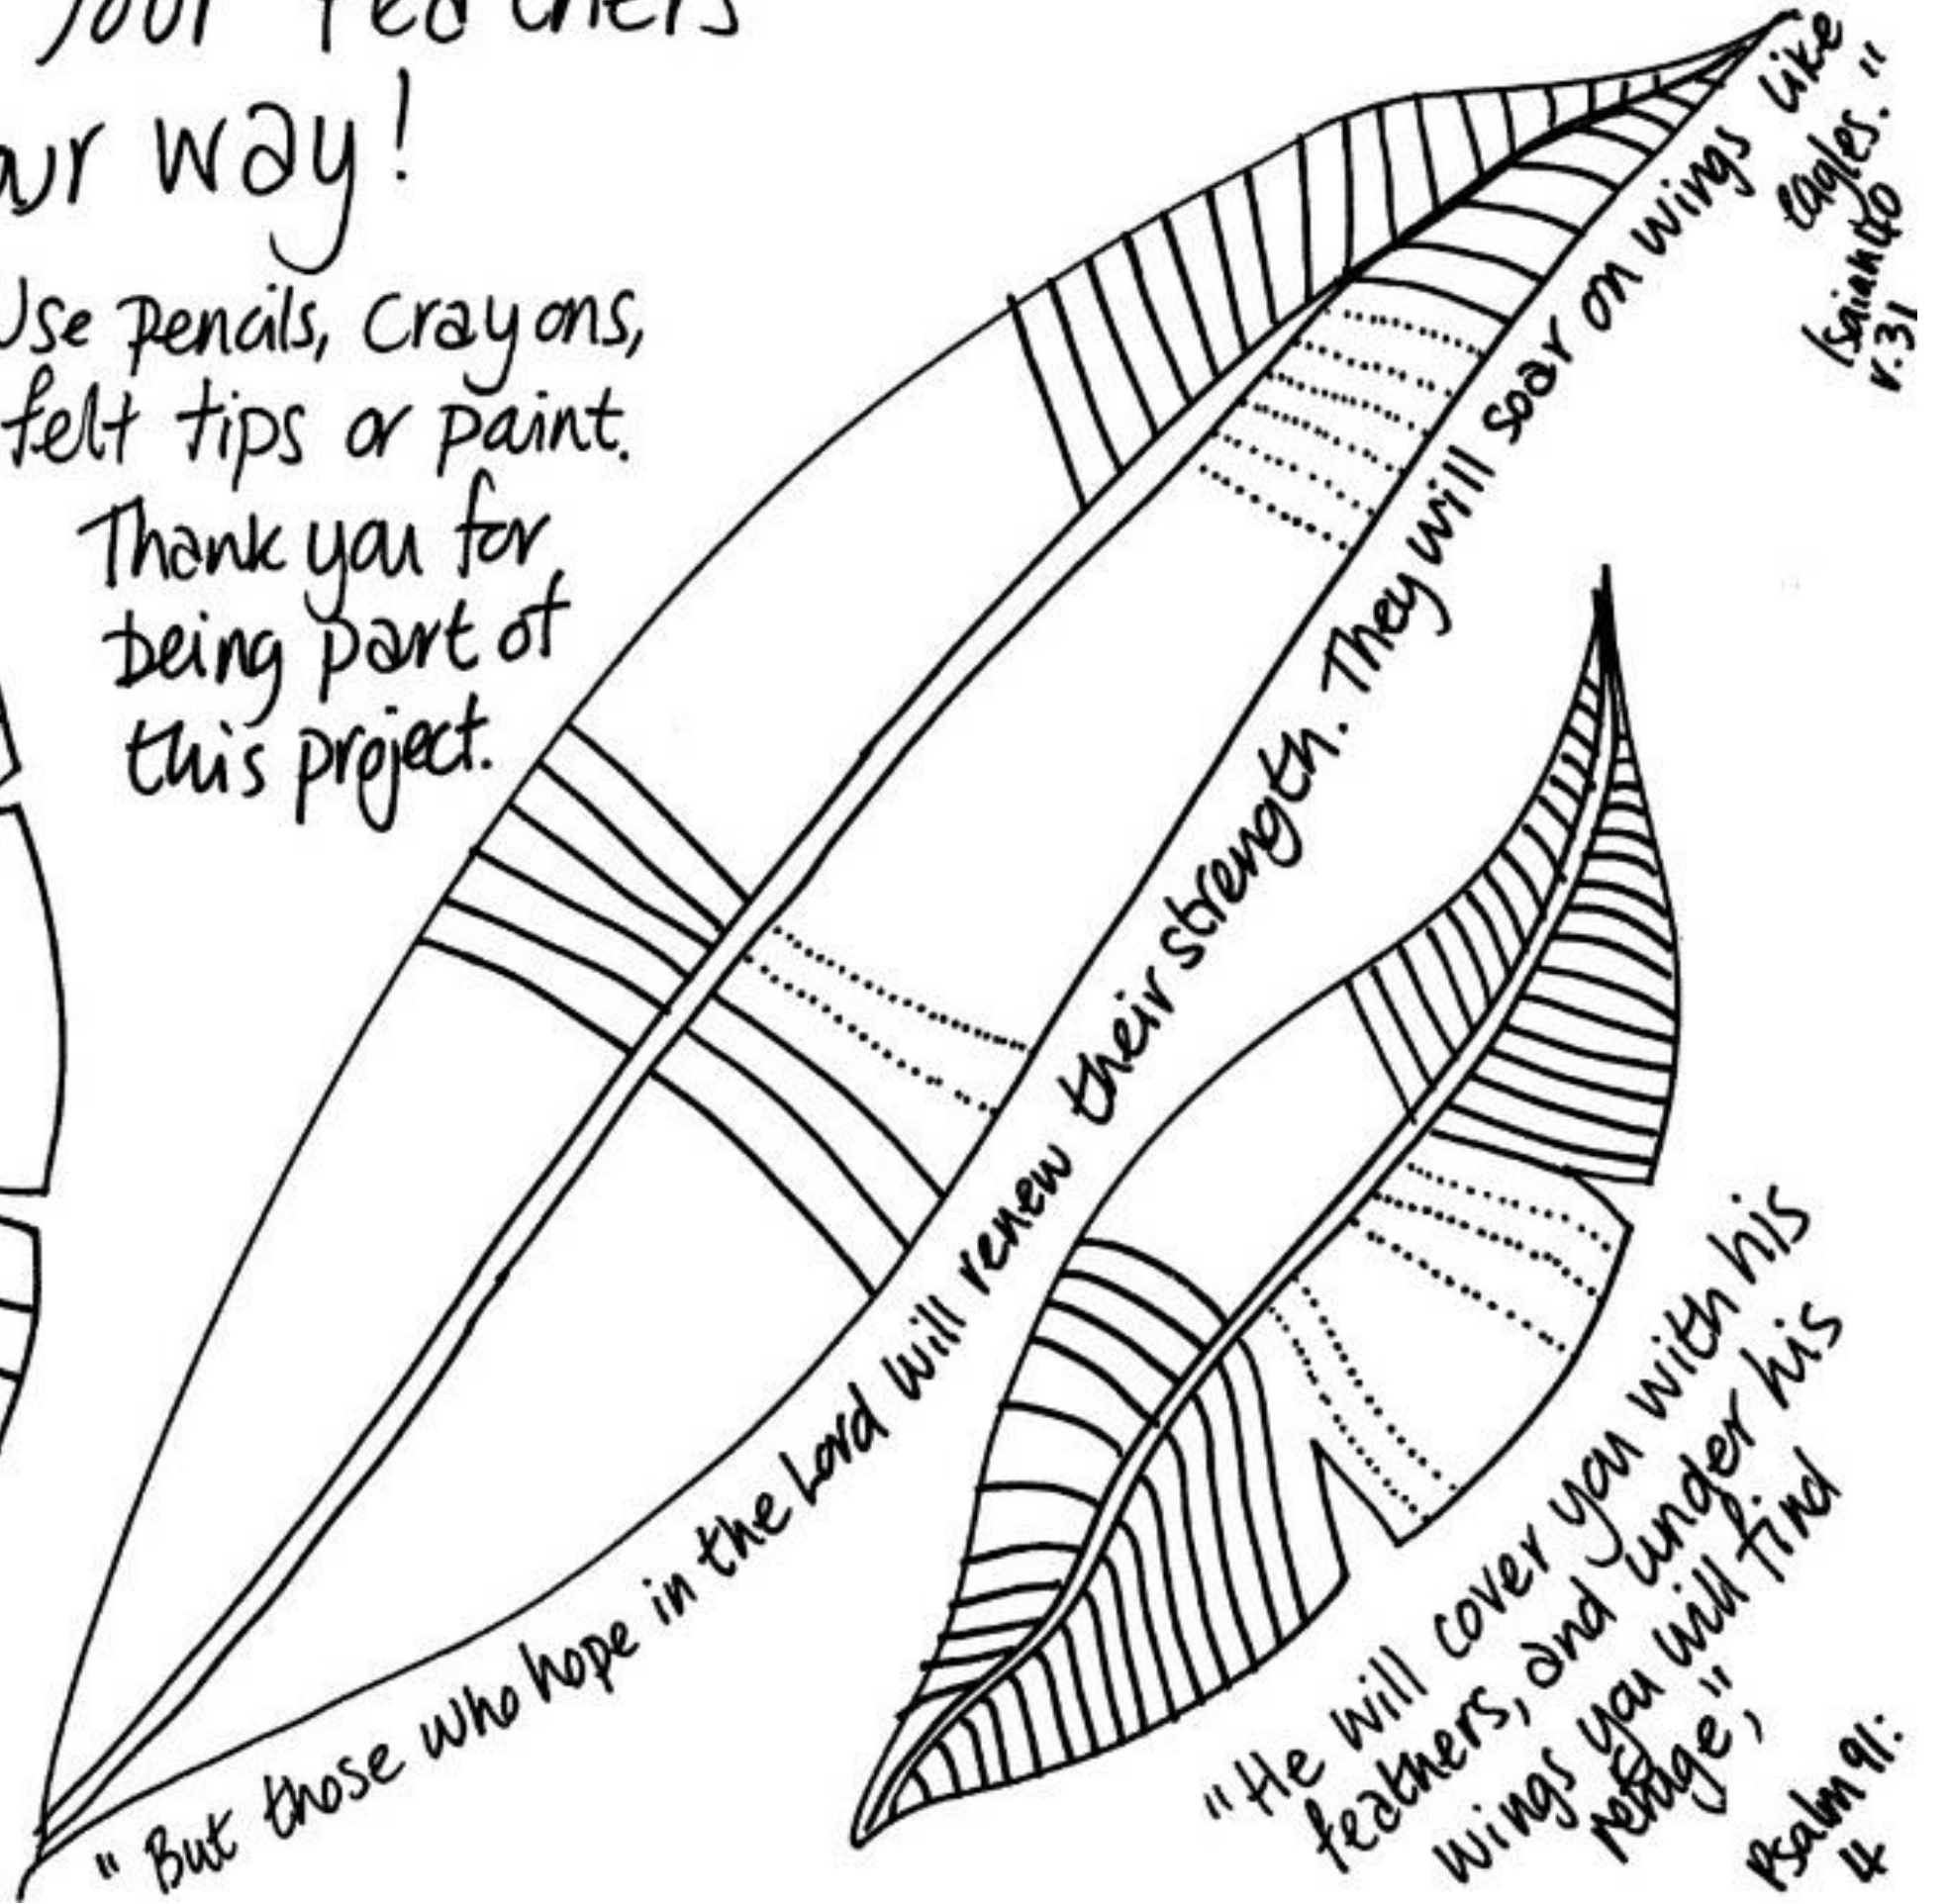 your feathers
our way!
Use pencils, crayons,
felt tips or paint.
Thank you for
being part of
this project.
"But those who hope in the Lord will renew their strength. They will soar on wings like
eagles."
Isaiah 40
v.31
"He will cover you with his
feathers, and under his
wings you will find
refuge",
Psalm 91:
4